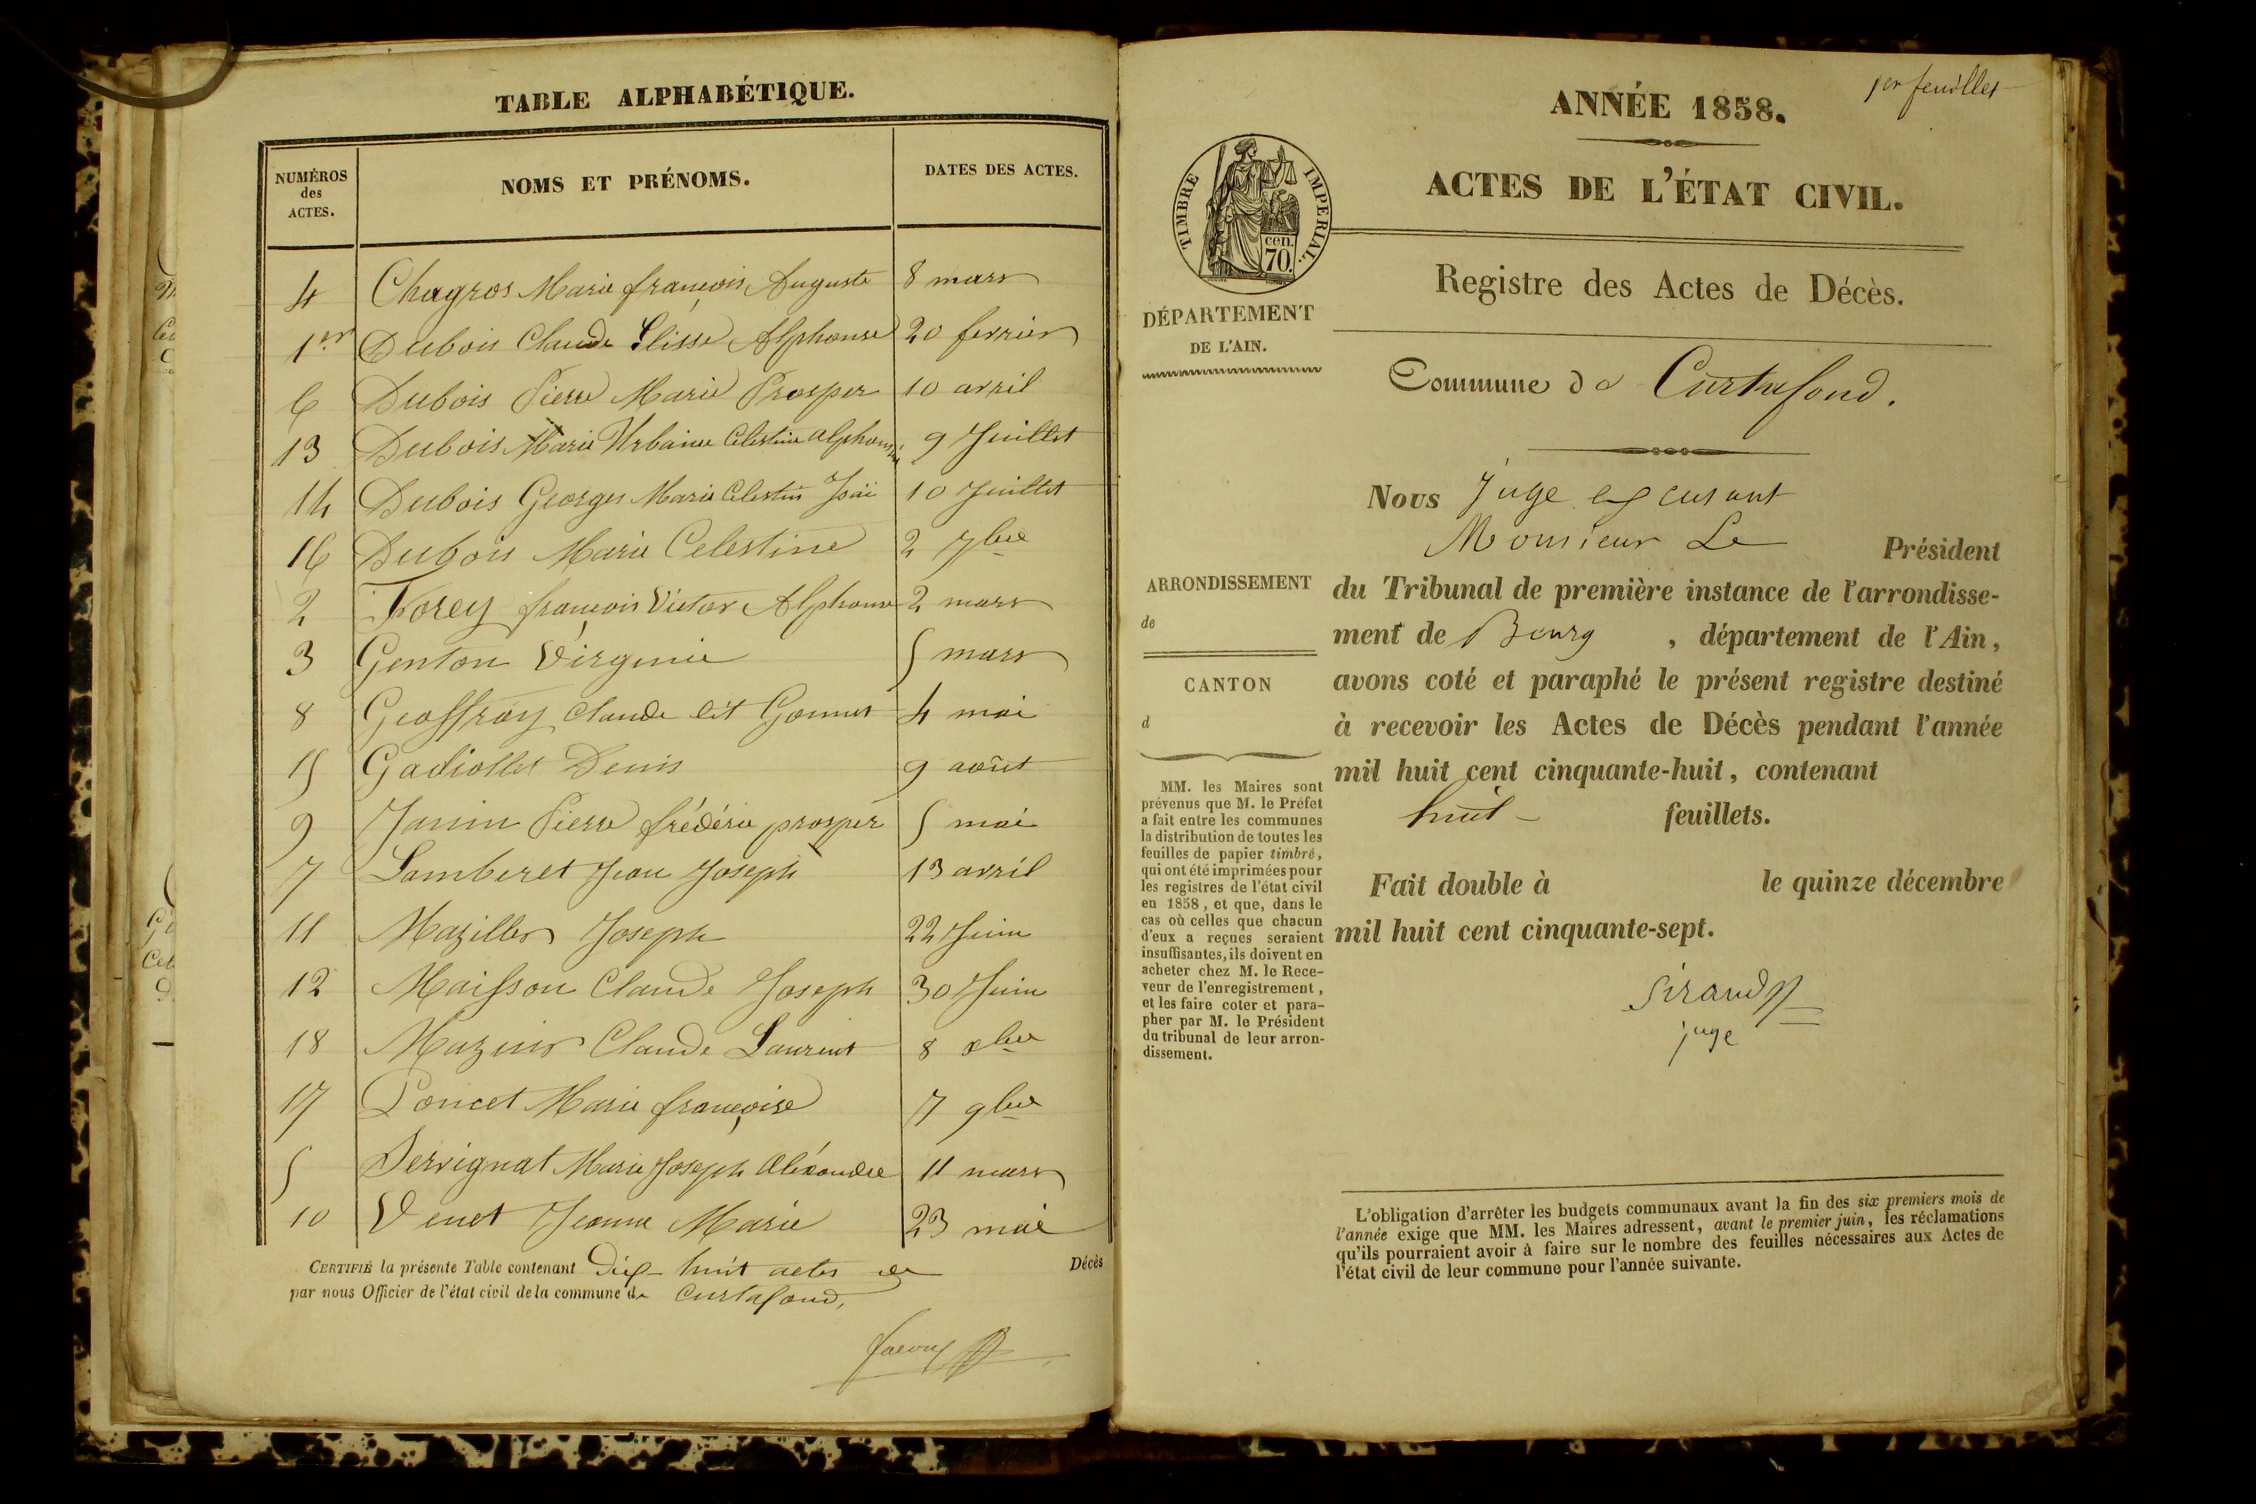 TABLE ALPHABÉTIQUE.
NUMÉROS des ACTES. NOMS ET PRÉNOMS. DATES DES ACTES.
4 Chagros Marie françois Auguste 8 mars
1er Dubois Claude Elisse Alphonse 20 fevrier
6 Dubois Pierre Marie Prosper 10 avril
13 Dubois Marie Urbaine Celestine alphonsine 9 Juillet
14 Dubois Georges Marie Celestin Isaï 10 Juillet
16 Dubois Marie Celestine 2 7bre
2 Forey françois Victor Alphonse 2 mars
3 Genton Virginie 5 mars
8 Geoffray Claude dit Gonnet 4 mai
15 Gadiollet Denis 9 août
9 Janin Pierre frédéric prosper 5 mai
7 Lamberet Jean Joseph 13 avril
11 Mazillier Joseph 22 Juin
12 Maisson Claude Joseph 30 Juin
18 Mazuir Claude Laurent 8 xbre
17 Poncet Marie françoise 7 9bre
5 Servignat Marie Joseph Aléxandre 11 mars
10 Venet Jeanne Marie 23 mai
CERTIFIÉ la présente Table contenant Dix-huit actes de Décès
par nous Officier de l'état civil de la commune de Curtafond,
1er feuillet
ANNÉE 1858.
ACTES DE L'ÉTAT CIVIL.
TIMBRE IMPERIAL.
cen.
70.
DÉPARTEMENT
DE L'AIN.
Registre des Actes de Décès.
Commune de Curtafond.
Nous Juge excusant
Monsieur Le Président
du Tribunal de première instance de l'arrondisse-
ment de Bourg, département de l'Ain,
avons coté et paraphé le présent registre destiné
à recevoir les Actes de Décès pendant l'année
mil huit cent cinquante-huit, contenant
huit feuillets.
Fait double à le quinze décembre
mil huit cent cinquante-sept.
Sirand
juge
ARRONDISSEMENT
de
CANTON
d
MM. les Maires sont
prévenus que M. le Préfet
a fait entre les communes
la distribution de toutes les
feuilles de papier timbré,
qui ont été imprimées pour
les registres de l'état civil
en 1858, et que, dans le
cas où celles que chacun
d'eux a reçues seraient
insuffisantes, ils doivent en
acheter chez M. le Rece-
veur de l'enregistrement,
et les faire coter et para-
pher par M. le Président
du tribunal de leur arron-
dissement.
L'obligation d'arrêter les budgets communaux avant la fin des six premiers mois de
l'année exige que MM. les Maires adressent, avant le premier juin, les réclamations
qu'ils pourraient avoir à faire sur le nombre des feuilles nécessaires aux Actes de
l'état civil de leur commune pour l'année suivante.